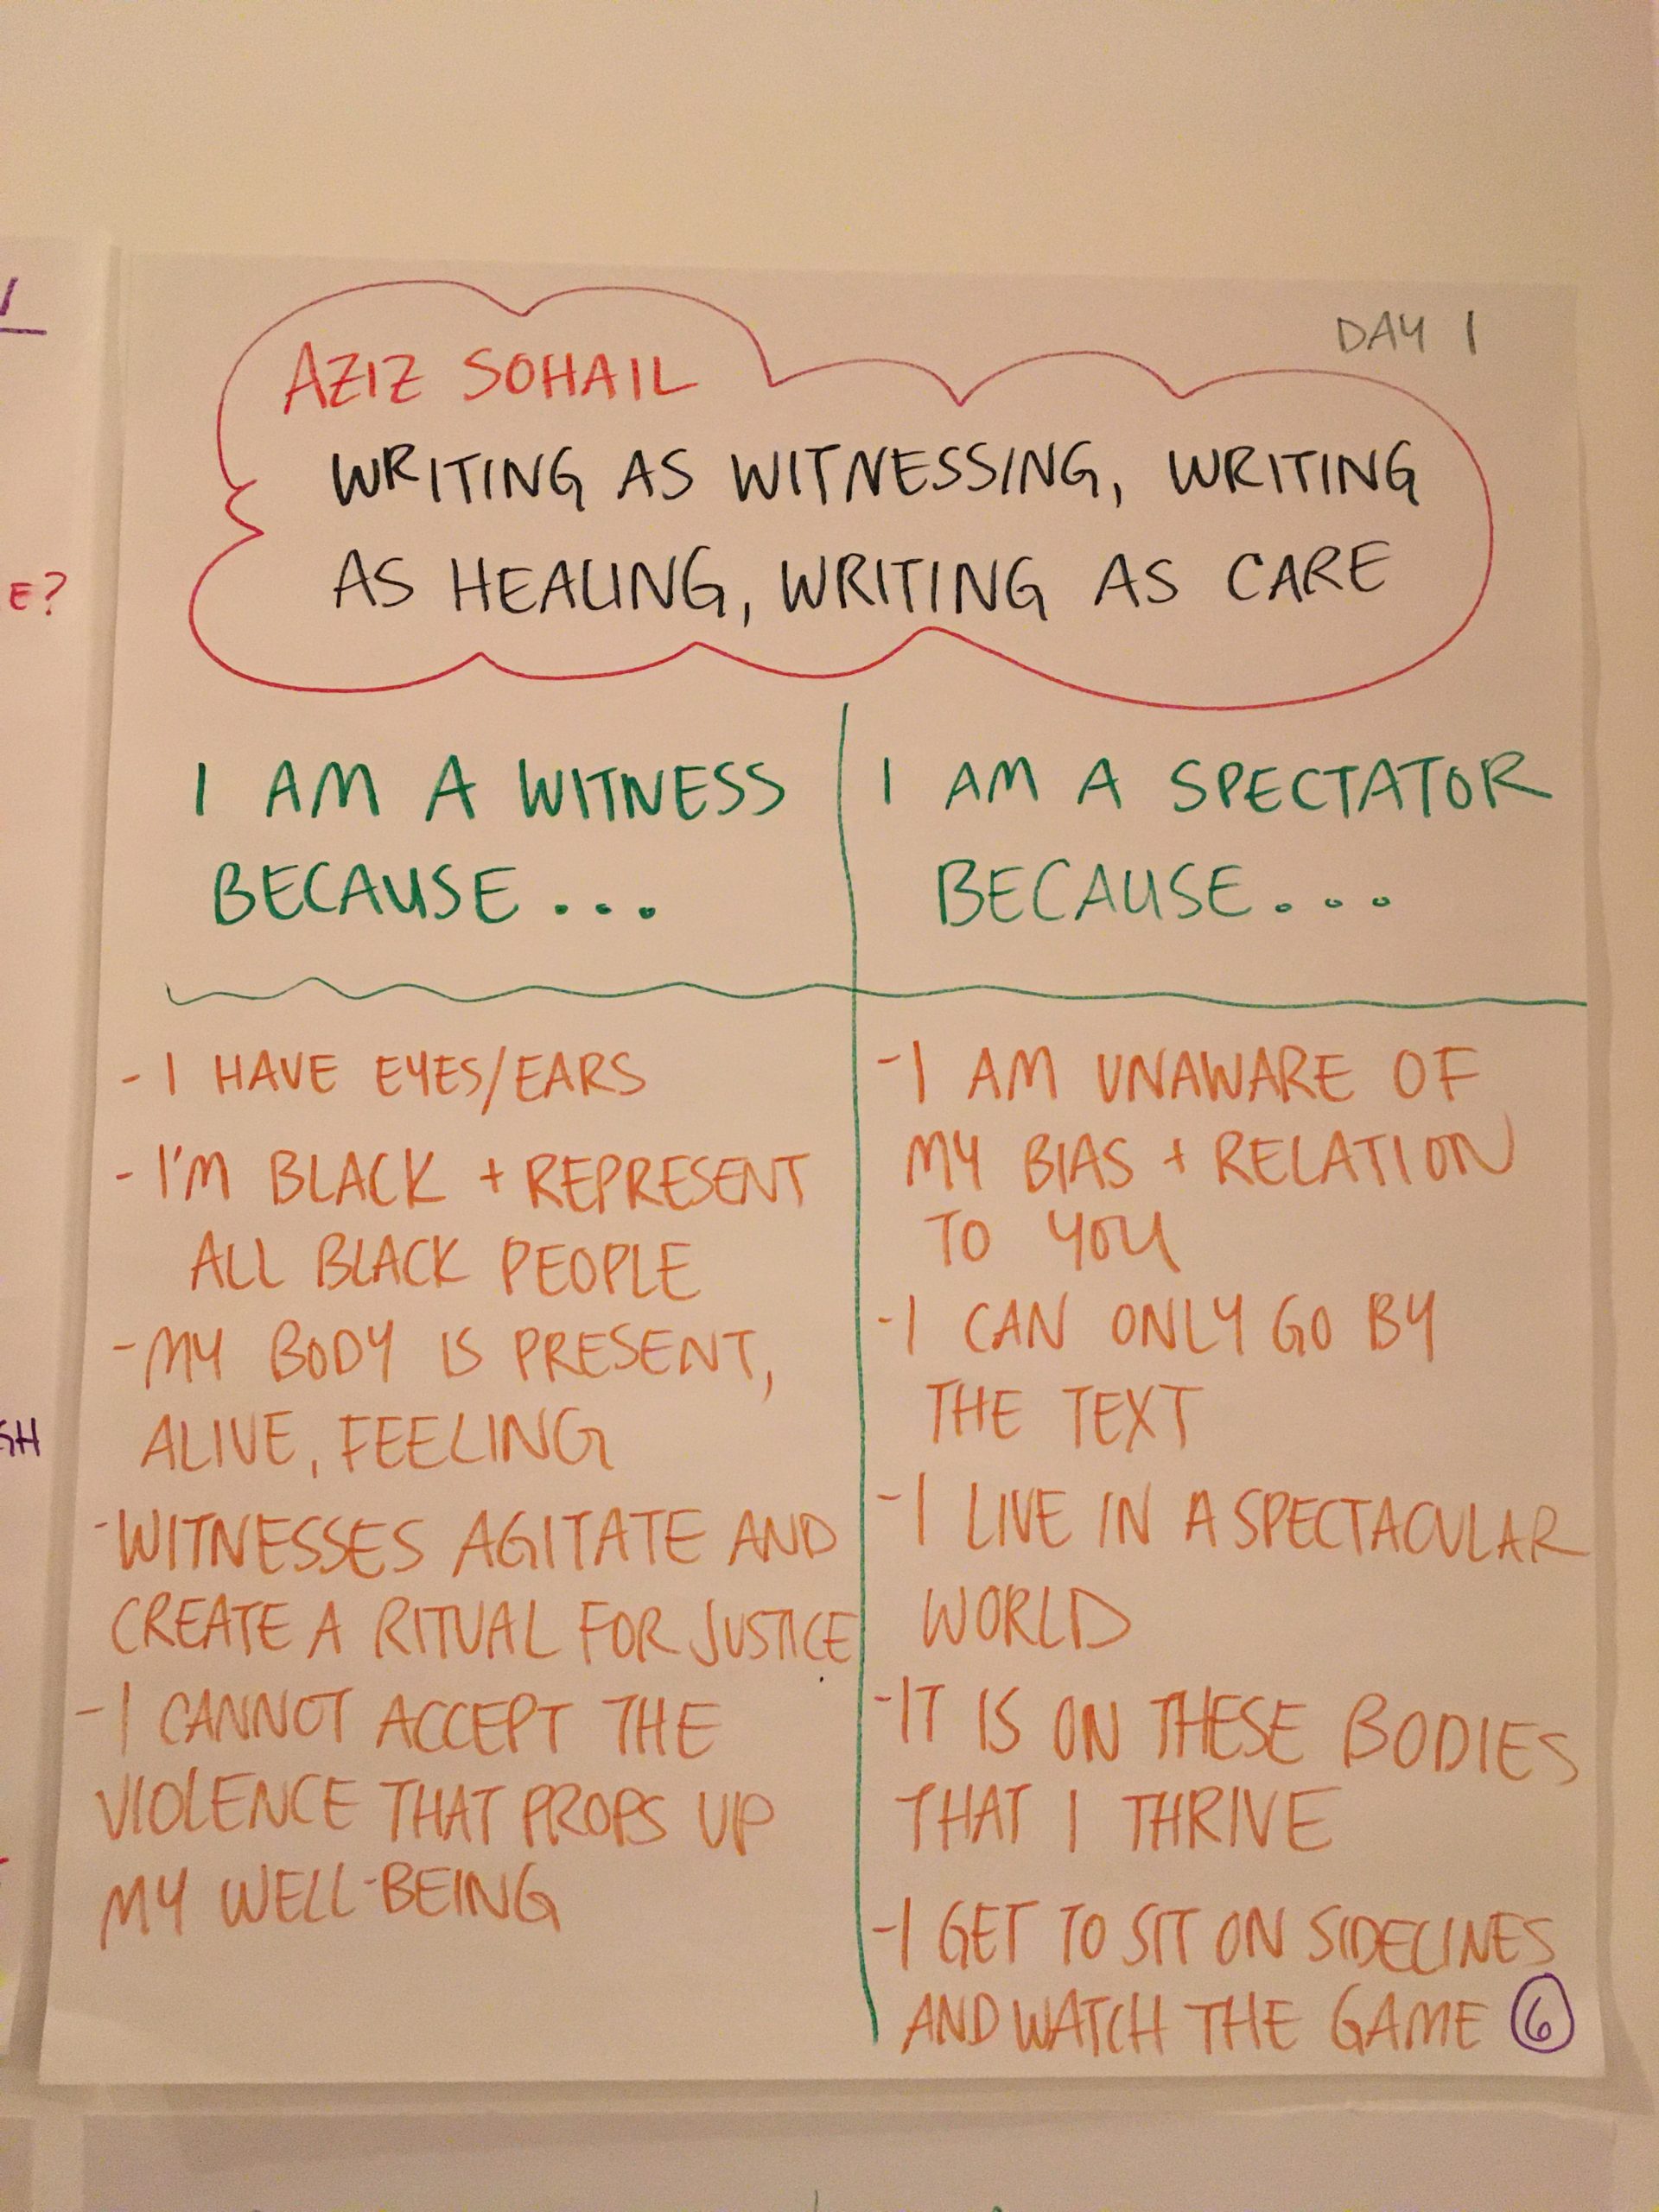 DAY 1
AZIZ SOHAIL
WRITING AS WITNESSING, WRITING
AS HEALING, WRITING AS CARE
I AM A WITNESS
BECAUSE...
- I HAVE EYES/EARS
- I'M BLACK + REPRESENT
ALL BLACK PEOPLE
- MY BODY IS PRESENT,
ALIVE, FEELING
- WITNESSES AGITATE AND
CREATE A RITUAL FOR JUSTICE
- I CANNOT ACCEPT THE
VIOLENCE THAT PROPS UP
MY WELL-BEING
I AM A SPECTATOR
BECAUSE...
- I AM UNAWARE OF
MY BIAS + RELATION
TO YOU
- I CAN ONLY GO BY
THE TEXT
- I LIVE IN A SPECTACULAR
WORLD
- IT IS ON THESE BODIES
THAT I THRIVE
- I GET TO SIT ON SIDELINES
AND WATCH THE GAME 6
E?
SH